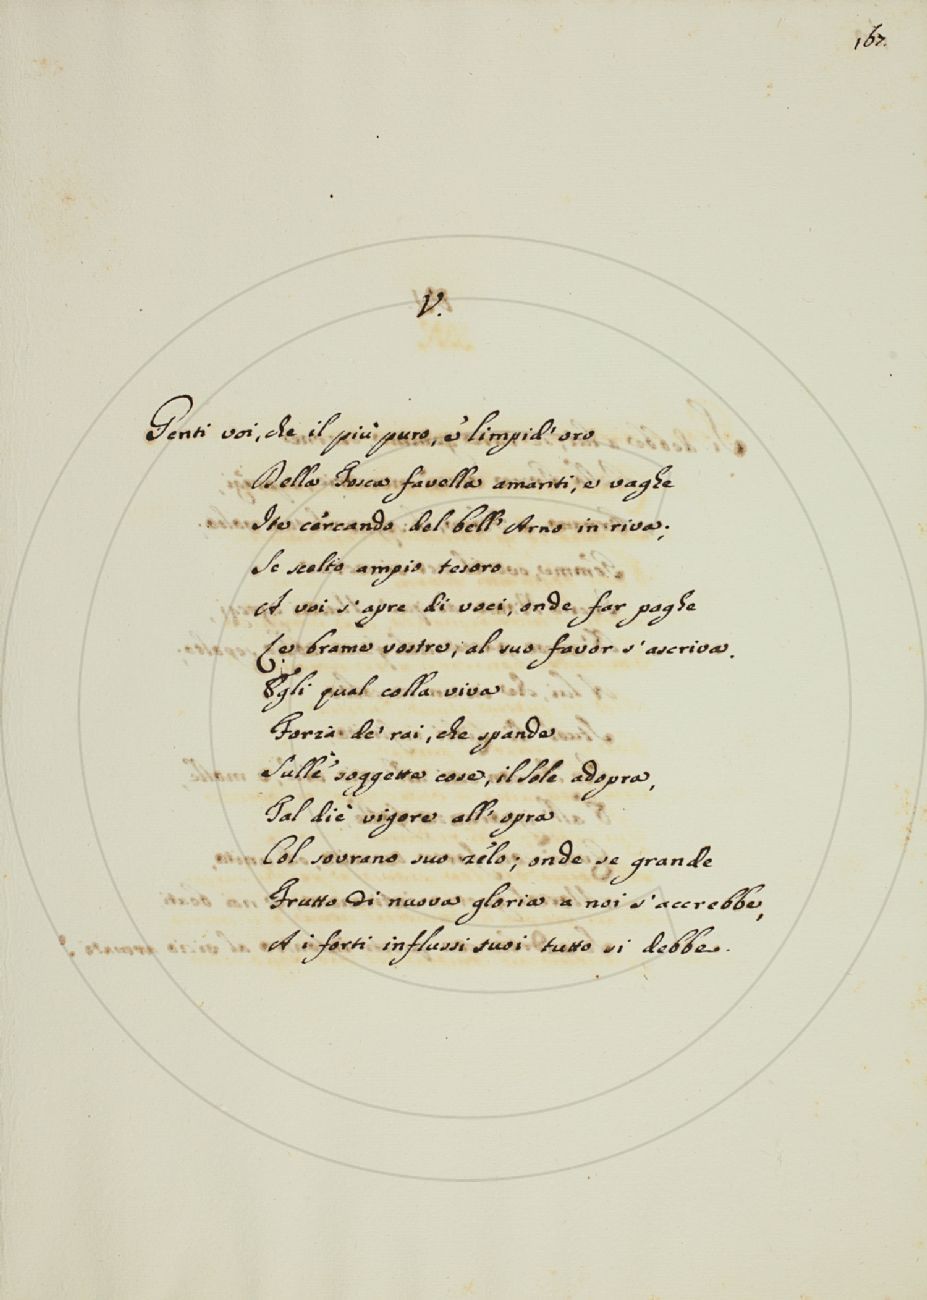 167.
V.
Genti voi, che il più puro, e limpid' oro
Della Tosca favella amanti, e vaghe
Ite cercando del bell' Arno in riva;
Se scelto ampio tesoro
A voi s'apre di voci, onde far paghe
Le brame vostre, al suo favor s'ascriva.
Egli qual colla viva
Forza de' rai, che spande
Sulle soggette cose, il Sole adopra,
Tal diè vigore all' opra
Col sovrano suo zelo; onde se grande
Frutto di nuova gloria a noi s'accrebbe,
A i forti influssi suoi tutto si debbe.